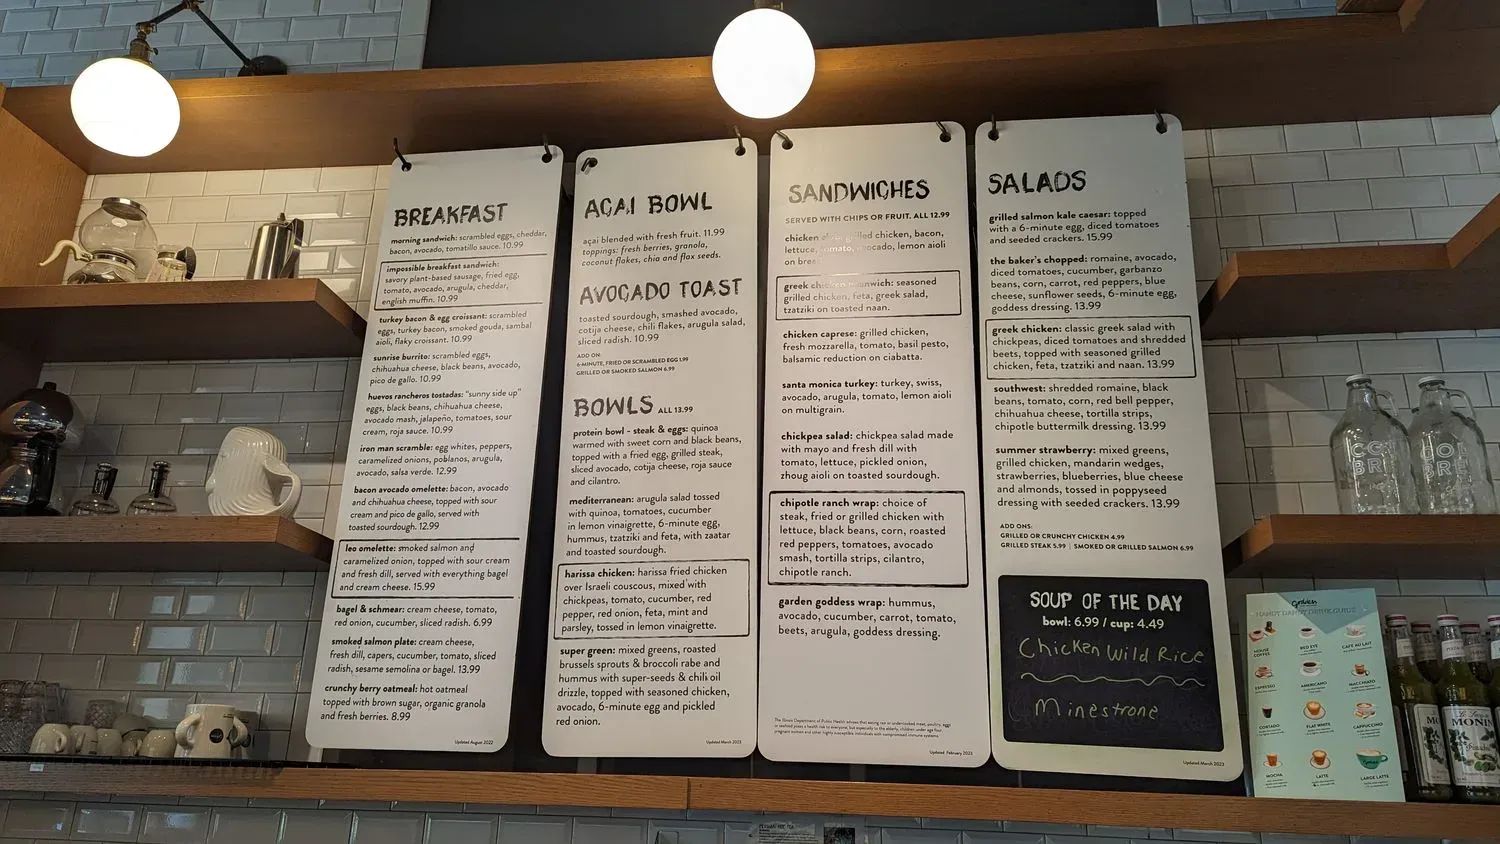 BREAKFAST
morning sandwich: scrambled eggs, cheddar,
bacon, avocado, tomatillo sauce. 10.99
impossible breakfast sandwich:
savory plant-based sausage, fried egg,
tomato, avocado, arugula, cheddar,
english muffin. 10.99
turkey bacon & egg croissant: scrambled
eggs, turkey bacon, smoked gouda, sambal
aioli, flaky croissant. 10.99
sunrise burrito: scrambled eggs,
chihuahua cheese, black beans, avocado,
pico de gallo. 10.99
huevos rancheros tostadas: "sunny side up"
eggs, black beans, chihuahua cheese,
avocado mash, jalapeño, tomatoes, sour
cream, roja sauce. 10.99
iron man scramble: egg whites, peppers,
caramelized onions, poblanos, arugula,
avocado, salsa verde. 12.99
bacon avocado omelette: bacon, avocado
and chihuahua cheese, topped with sour
cream and pico de gallo, served with
toasted sourdough. 12.99
leo omelette: smoked salmon and
caramelized onion, topped with sour cream
and fresh dill, served with everything bagel
and cream cheese. 15.99
bagel & schmear: cream cheese, tomato,
red onion, cucumber, sliced radish. 6.99
smoked salmon plate: cream cheese,
fresh dill, capers, cucumber, tomato, sliced
radish, sesame semolina or bagel. 13.99
crunchy berry oatmeal: hot oatmeal
topped with brown sugar, organic granola
and fresh berries. 8.99
Updated August 2022
ACAI BOWL
açai blended with fresh fruit. 11.99
toppings: fresh berries, granola,
coconut flakes, chia and flax seeds.
AVOCADO TOAST
toasted sourdough, smashed avocado,
cotija cheese, chili flakes, arugula salad,
sliced radish. 10.99
ADD ON:
6-MINUTE, FRIED OR SCRAMBLED EGG 1.99
GRILLED OR SMOKED SALMON 6.99
BOWLS ALL 13.99
protein bowl - steak & eggs: quinoa
warmed with sweet corn and black beans,
topped with a fried egg, grilled steak,
sliced avocado, cotija cheese, roja sauce
and cilantro.
mediterranean: arugula salad tossed
with quinoa, tomatoes, cucumber
in lemon vinaigrette, 6-minute egg,
hummus, tzatziki and feta, with zaatar
and toasted sourdough.
harissa chicken: harissa fried chicken
over Israeli couscous, mixed with
chickpeas, tomato, cucumber, red
pepper, red onion, feta, mint and
parsley, tossed in lemon vinaigrette.
super green: mixed greens, roasted
brussels sprouts & broccoli rabe and
hummus with super-seeds & chili oil
drizzle, topped with seasoned chicken,
avocado, 6-minute egg and pickled
red onion.
Updated March 2023
SANDWICHES
SERVED WITH CHIPS OR FRUIT. ALL 12.99
chicken grilled chicken, bacon,
lettuce, tomato, avocado, lemon aioli
on
greek seasoned
grilled chicken, feta, greek salad,
tzatziki on toasted naan.
chicken caprese: grilled chicken,
fresh mozzarella, tomato, basil pesto,
balsamic reduction on ciabatta.
santa monica turkey: turkey, swiss,
avocado, arugula, tomato, lemon aioli
on multigrain.
chickpea salad: chickpea salad made
with mayo and fresh dill with
tomato, lettuce, pickled onion,
zhoug aioli on toasted sourdough.
chipotle ranch wrap: choice of
steak, fried or grilled chicken with
lettuce, black beans, corn, roasted
red peppers, tomatoes, avocado
smash, tortilla strips, cilantro,
chipotle ranch.
garden goddess wrap: hummus,
avocado, cucumber, carrot, tomato,
beets, arugula, goddess dressing.
The Illinois Department of Public Health advises that eating raw or undercooked meat, poultry, eggs
or seafood poses a health risk to everyone, but especially to the elderly, children under age four,
pregnant women and other highly susceptible individuals with compromised immune systems
Updated February 2023
SALADS
grilled salmon kale caesar: topped
with a 6-minute egg, diced tomatoes
and seeded crackers. 15.99
the baker's chopped: romaine, avocado,
diced tomatoes, cucumber, garbanzo
beans, corn, carrot, red peppers, blue
cheese, sunflower seeds, 6-minute egg,
goddess dressing. 13.99
greek chicken: classic greek salad with
chickpeas, diced tomatoes and shredded
beets, topped with seasoned grilled
chicken, feta, tzatziki and naan. 13.99
southwest: shredded romaine, black
beans, tomato, corn, red bell pepper,
chihuahua cheese, tortilla strips,
chipotle buttermilk dressing. 13.99
summer strawberry: mixed greens,
grilled chicken, mandarin wedges,
strawberries, blueberries, blue cheese
and almonds, tossed in poppyseed
dressing with seeded crackers. 13.99
ADD ONS:
GRILLED OR CRUNCHY CHICKEN 4.99
GRILLED STEAK 5.99 | SMOKED OR GRILLED SALMON 6.99
SOUP OF THE DAY
bowl: 6.99 / cup: 4.49
Chicken Wild Rice
Minestrone
Updated March 2023
HANDY DANDY DRINK GUIDE
HOUSE COFFEE
RED EYE
CAFE AU LAIT
ESPRESSO
AMERICANO
MACCHIATO
CORTADO
FLAT WHITE
CAPPUCCINO
MOCHA
LATTE
LARGE LATTE
MONIN